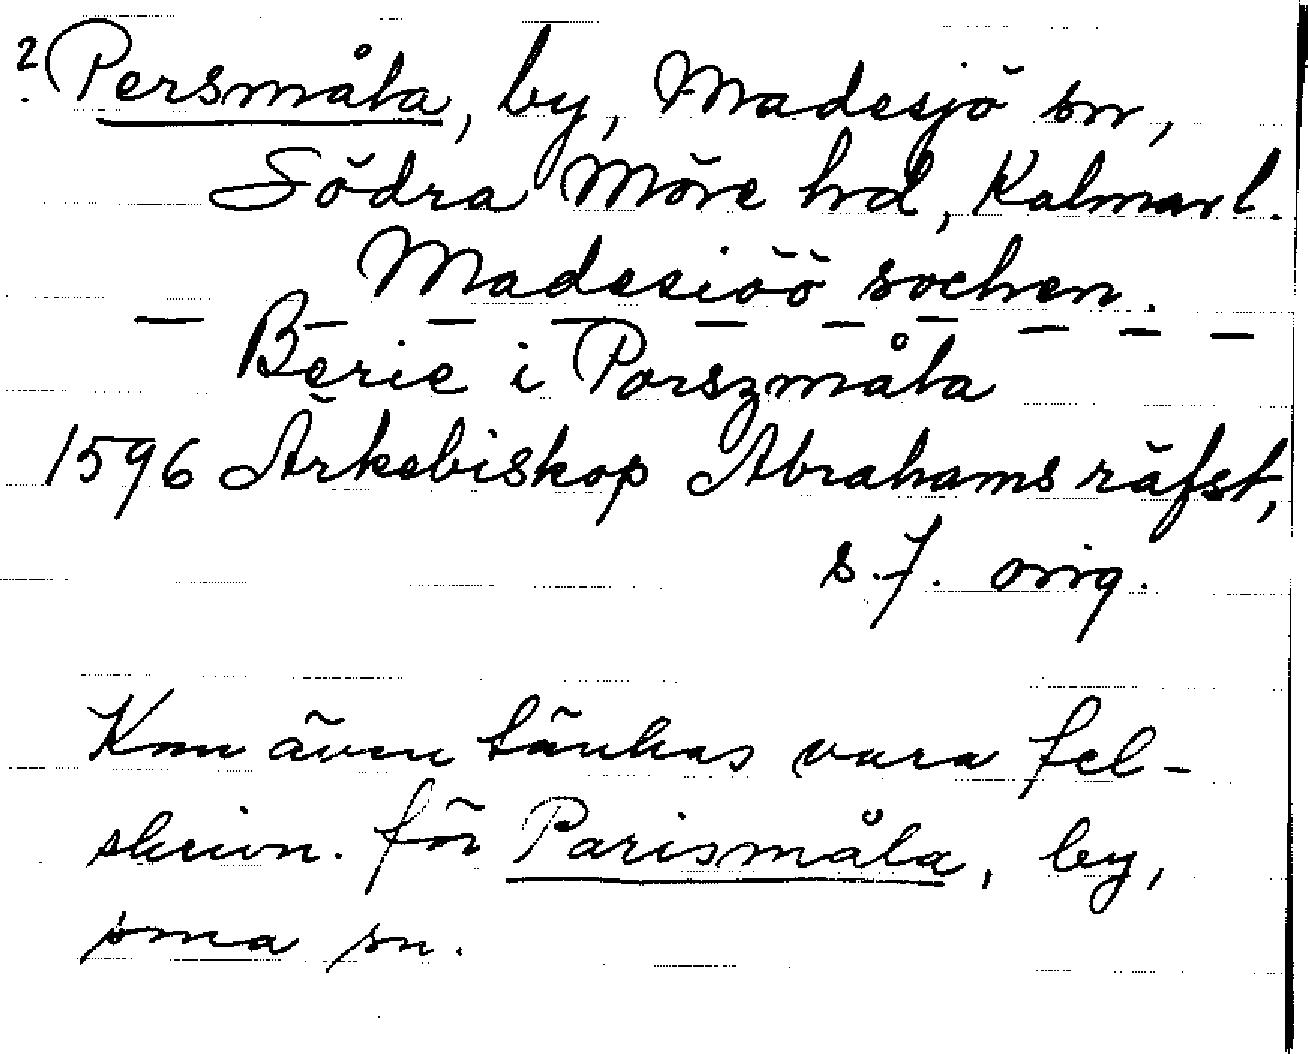 ? Persmåla, by, Madesjö sn,
Södra Möre hd, Kalmar l.
Madesiöö sochen.
— — — — — — — — — —
Berie i Porszmåla
1596 Ärkebiskop Abrahams räfst,
s. 7. orig.
Kan även tänkas vara fel-
skrivn. för Parismåla, by,
sma sn.